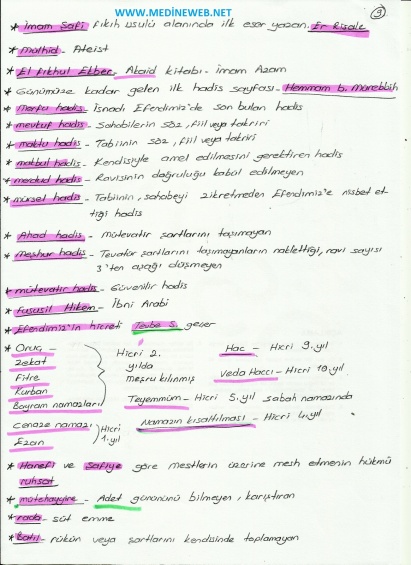 www.MEDINEWEB.NET
9
* İmam Şafi fıkıh usulü alanında ilk eser yazan. Er Risale
* Mülhid - Ateist
* El fıkhul Ekber - Akaid kitabı - İmam Azam
* Günümüze kadar gelen ilk hadis sayfası - Hemmam b. Münebbih
* Merfu hadis - İsnadı Efendimiz'de son bulan hadis
* mevkuf hadis - Sahabilerin söz, fiil veya takriri
* maktu hadis - Tabiinin söz, fiil veya takriri
* makbul hadis - Kendisiyle amel edilmesini gerektiren hadis
* merdud hadis - Ravisinin doğruluğu kabul edilmeyen
* mürsel hadis - Tabiinin, sahabeyi zikretmeden Efendimiz'e nisbet et-
tiği hadis
* Ahad hadis - mütevatir şartlarını taşımayan
* Meşhur hadis - Tevatür şartlarını taşımayanların naklettiği, ravi sayısı
3'ten aşağı düşmeyen
* mütevatir hadis - Güvenilir hadis
* Fususil Hikem - İbni Arabi
* Efendimiz'in hicreti Tevbe S. geçer
* Oruç -
Zekat
Fitre
Kurban
Bayram namazları
Hicri 2.
yılda
meşru kılınmış
Cenaze namazı
Ezan
Hicri
1.yıl
Hac - Hicri 9.yıl
Veda Haccı - Hicri 10.yıl
Teyemmüm - Hicri 5.yıl sabah namazında
Namazın kısaltılması - Hicri 4.yıl
* Hanefi ve Şafiye göre mestlerin üzerine mesh etmenin hükmü
ruhsat
* mütehayyire - Adet gününü bilmeyen, karıştıran
* rada - süt emme
* Batıl - rükün veya şartlarını kendisinde toplamayan